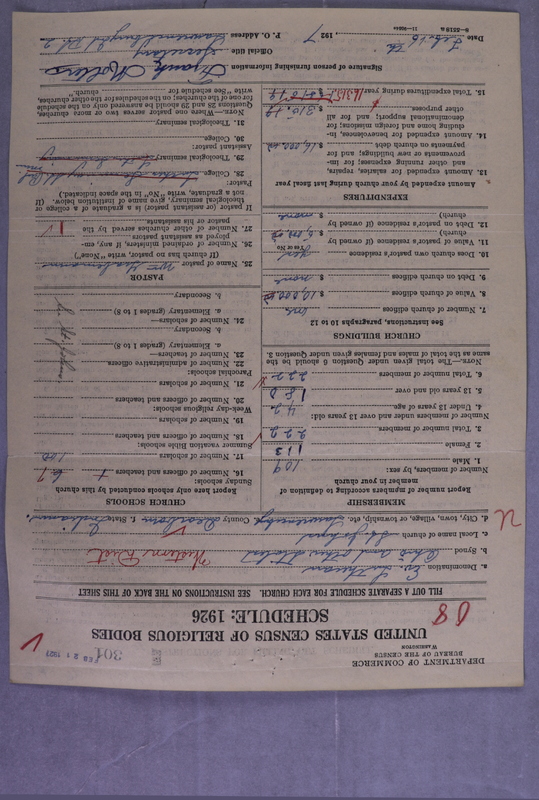 DEPARTMENT OF COMMERCE
BUREAU OF THE CENSUS
WASHINGTON
301
FEB 21 1927
UNITED STATES CENSUS OF RELIGIOUS BODIES
SCHEDULE: 1926
FILL OUT A SEPARATE SCHEDULE FOR EACH CHURCH. SEE INSTRUCTIONS ON THE BACK OF THIS SHEET
a. Denomination Ev. Lutheran
b. Synod Ohio and other States Western Dist
c. Local name of church St. Johns
d. City, town, village, or township, etc. Lawrenceburg County Dearborn State Indiana
MEMBERSHIP
Report number of members according to definition of member in your church
Number of members, by sex:
1. Male 109
2. Female 113
3. Total number of members 222
Number of members under and over 13 years old:
4. Under 13 years of age 42
5. 13 years old and over 180
6. Total number of members 222
NOTE.—The total given under Question 6 should be the same as the total of males and females given under Question 3.
CHURCH BUILDINGS
See instructions, paragraphs 10 to 12
7. Number of church edifices one
8. Value of church edifices $
9. Debt on church edifices $ none
10. Does church own pastor's residence Yes
Yes or No
11. Value of pastor's residence (if owned by church) $
12. Debt on pastor's residence (if owned by church) $ none
EXPENDITURES
Amount expended by your church during last fiscal year
13. Amount expended for salaries, repairs, and other running expenses; for improvements or new building; and for payments on church debt $
14. Amount expended for benevolences, including home and foreign missions; for denominational support; and for all other purposes $
15. Total expenditures during year $
CHURCH SCHOOLS
Report here only schools conducted by this church
Sunday schools:
16. Number of officers and teachers
17. Number of scholars 100
Summer vacation Bible schools:
18. Number of officers and teachers
19. Number of scholars
Week-day religious schools:
20. Number of officers and teachers
21. Number of scholars
Parochial schools:
22. Number of administrative officers
23. Number of teachers—
a. Elementary (grades 1 to 8)
b. Secondary
24. Number of scholars—
a. Elementary (grades 1 to 8)
b. Secondary
PASTOR
25. Name of pastor
(If church has no pastor, write "None")
26. Number of ordained ministers, if any, employed as assistant pastor
27. Number of other churches served by the pastor or his assistants
If pastor (or assistant pastor) is a graduate of a college or theological seminary, give name of institution below. (If not a graduate, write "No" in the space indicated.)
Pastor:
28. College
29. Theological seminary
Assistant pastor:
30. College
31. Theological seminary
NOTE.—Where one pastor serves two or more churches, Questions 28 and 29 should be answered only on the schedule for one of the churches; on the schedules for the other churches, write "See schedule for church."
Signature of person furnishing information
Official title Secretary
P. O. Address
Date Feb. 15 th, 1927